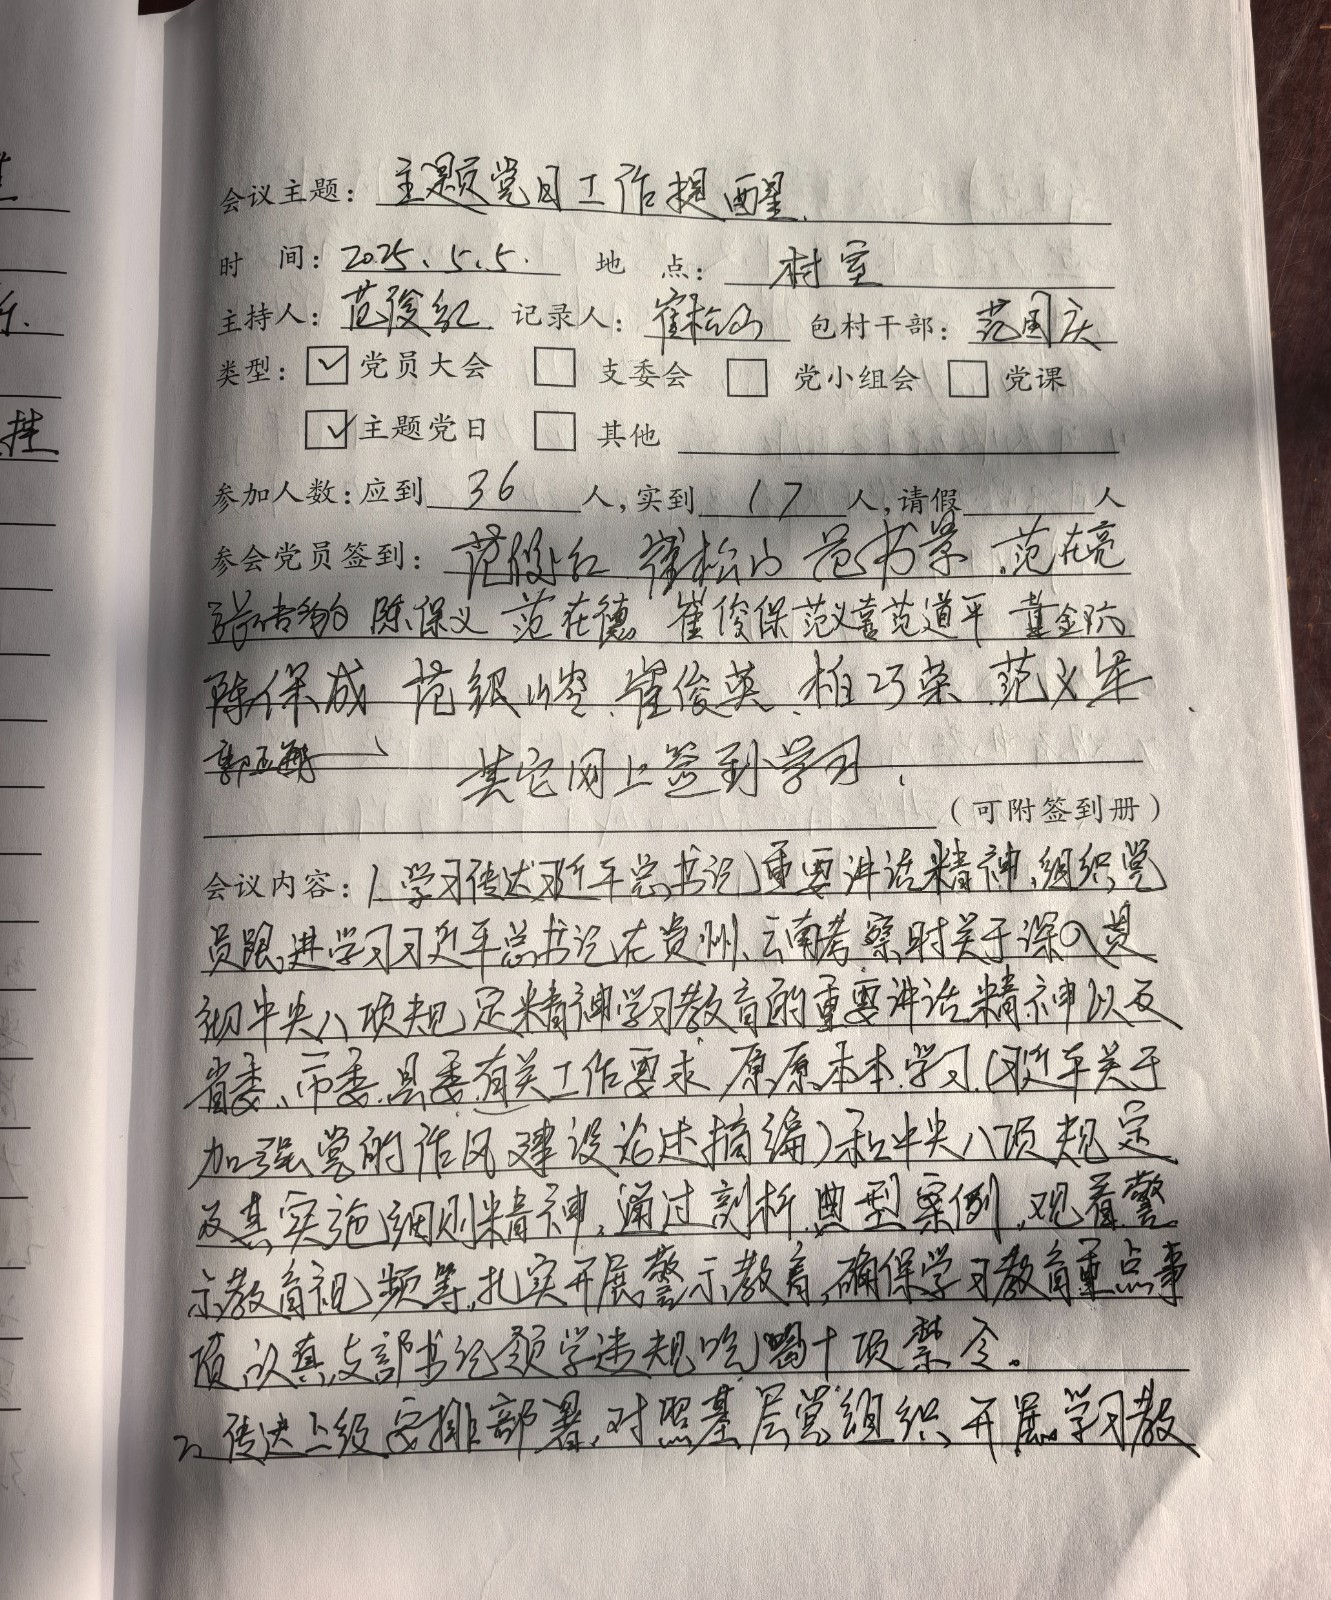 会议主题：主题党日工作提醒
时 间：2025.5.5. 地 点：村室
主持人：范俊红 记录人：崔松山 包村干部：范国庆
类型：☑党员大会 □支委会 □党小组会 □党课
☑主题党日 □其他
参加人数：应到36人，实到17人，请假 人
参会党员签到：范俊红 崔松山 范书景 范在亮
陈保义 范在德 崔俊保 范义喜 范道平 董金
陈保成 范银岭 崔俊英 柏巧荣 范义军
郭 其它网上签到学习.
（可附签到册）
会议内容：1.学习传达习近平总书记重要讲话精神,组织党
员跟进学习习近平总书记在贵州、云南考察时关于深入贯
彻中央八项规定精神学习教育的重要讲话精神以及
省委、市委、县委有关工作要求 原原本本学习(习近平关于
加强党的作风建设论述摘编)和中央八项规定
及其实施细则精神,通过剖析典型案例,观看警
示教育视频等,扎实开展警示教育,确保学习教育重点事
项认真,支部书记领学违规吃喝十项禁令。
2、传达上级安排部署,对照基层党组织开展学习教